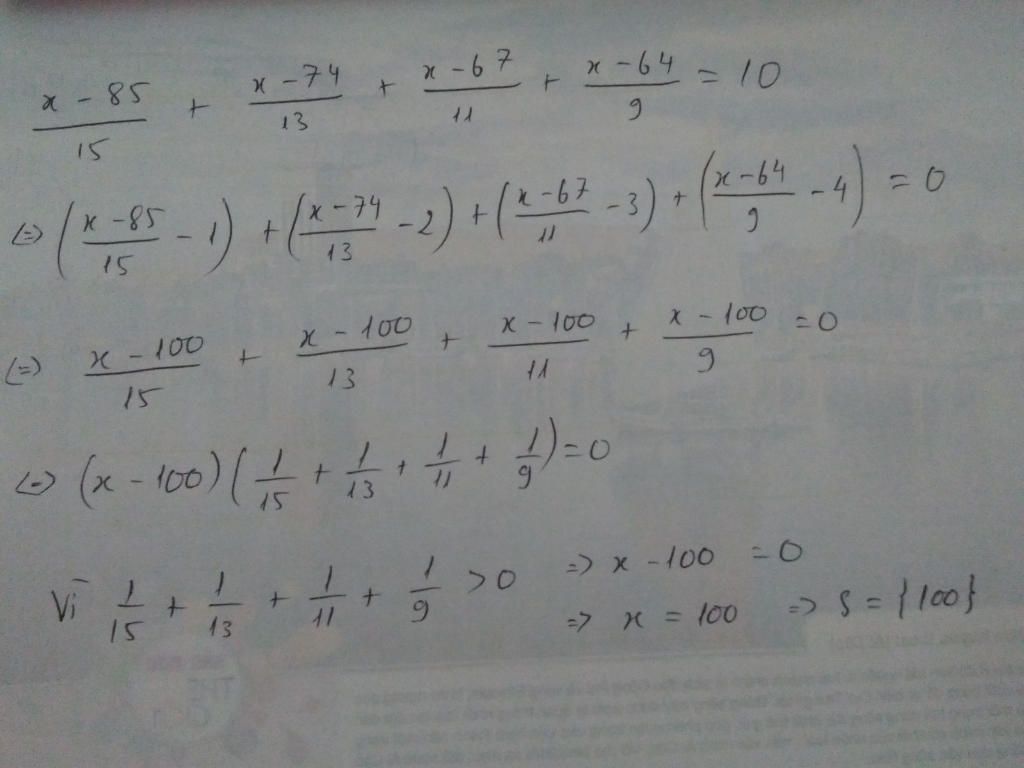 x - 85 / 15 + x - 74 / 13 + x - 67 / 11 + x - 64 / 9 = 10
<=> (x - 85 / 15 - 1) + (x - 74 / 13 - 2) + (x - 67 / 11 - 3) + (x - 64 / 9 - 4) = 0
<=> x - 100 / 15 + x - 100 / 13 + x - 100 / 11 + x - 100 / 9 = 0
<=> (x - 100) (1/15 + 1/13 + 1/11 + 1/9) = 0
Vì 1/15 + 1/13 + 1/11 + 1/9 > 0 => x - 100 = 0
=> x = 100 => S = {100}